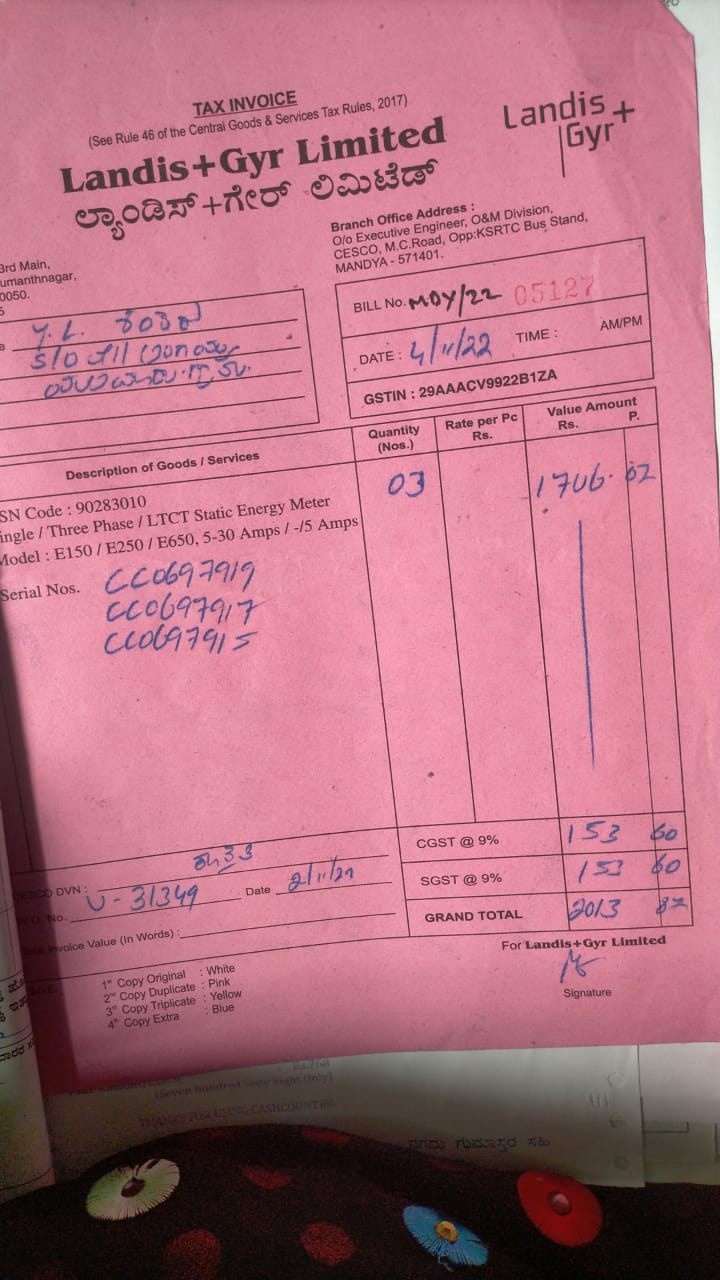 TAX INVOICE
(See Rule 46 of the Central Goods & Services Tax Rules, 2017)
Landis+Gyr Limited
ಲ್ಯಾಂಡಿಸ್+ಗೇರ್ ಲಿಮಿಟೆಡ್
Landis+
Gyr
3rd Main,
umanthnagar,
0050.
Branch Office Address :
O/o Executive Engineer, O&M Division,
CESCO, M.C.Road, Opp:KSRTC Bus Stand,
MANDYA - 571401.
BILL No. MDY/22 05127
DATE : 4/11/22 TIME : AM/PM
GSTIN : 29AAACV9922B1ZA
Y. L.
S/O
Description of Goods / Services
Quantity
(Nos.)
Rate per Pc
Rs.
Value Amount
Rs. P.
SN Code : 90283010
ingle / Three Phase / LTCT Static Energy Meter
Model : E150 / E250 / E650, 5-30 Amps / -/5 Amps
03
1706. 62
Serial Nos. CC0697919
CC0697917
CC0697915
CGST @ 9% 153 60
SGST @ 9% 153 60
GRAND TOTAL 2013 82
CESCO DVN :
W.O. No. U-31349 Date
Total Invoice Value (In Words) :
For Landis+Gyr Limited
Signature
1st Copy Original : White
2nd Copy Duplicate : Pink
3rd Copy Triplicate : Yellow
4th Copy Extra : Blue
Rs.768
(Seven hundred Sixty Eight Only)
THANKS FOR USING CASHCOUNTER
ನಗದು ಗುಮಾಸ್ತರ ಸಹಿ